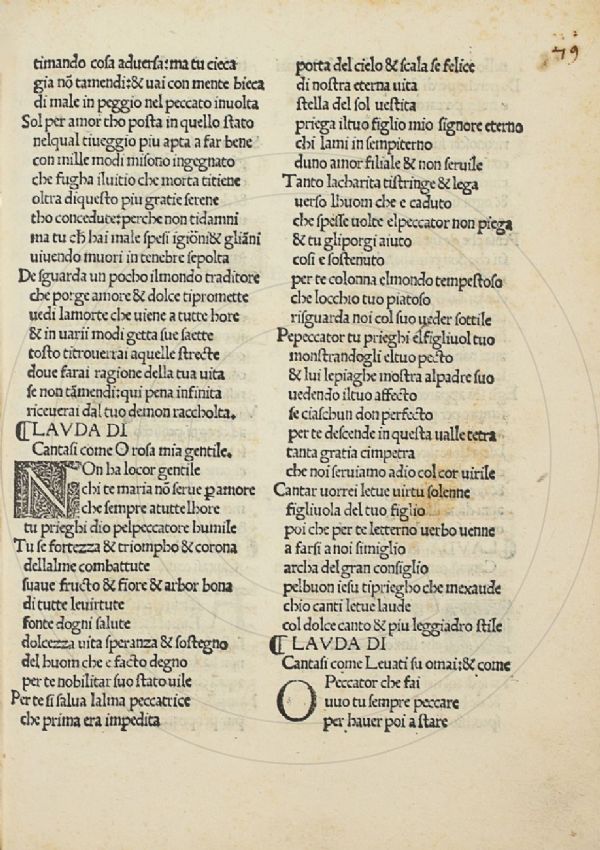 79
timando cosa aduersa: ma tu cieca
gia nō tamendi: & uai con mente bieca
di male in peggio nel peccato inuolta
Sol per amor tho posta in quello stato
nelqual tiueggio piu apta a far bene
con mille modi misono ingegnato
che fugha iluitio che morta titiene
oltra diquesto piu gratie serene
tho concedute: perche non tidamni
ma tu ch̄ hai male spesi igiōni & gliāni
uiuendo muori in tenebre sepolta
De sguarda un pocho ilmondo traditore
che porge amore & dolce tipromette
uedi lamorte che uiene a tutte hore
& in uarii modi getta sue saette
tosto titrouerrai aquelle strecte
doue farai ragione della tua uita
se non tāmendi: qui pena infinita
riceuerai dal tuo demon racholta.
¶ LAVDA DI
Cantasi come O rosa mia gentile.
NOn ha locor gentile
chi te maria nō serue ꝑ amore
che sempre atutte lhore
tu prieghi dio pelpeccator humile
Tu se fortezza & triompho & corona
dellalme combattute
suaue fructo & fiore & arbor bona
di tutte leuirtute
fonte dogni salute
dolcezza uita speranza & sostegno
del huom che e facto degno
per te nobilitar suo stato uile
Per te si salua lalma peccatrice
che prima era impedita
porta del cielo & scala se felice
di nostra eterna uita
stella del sol uestita
priega iltuo figlio mio signore eterno
chi lami in sempiterno
duno amor filiale & non seruile
Tanto lacharita tistringe & lega
uerso lhuom che e caduto
che spesse uolte elpeccator non piega
& tu gliporgi aiuto
cosi e sostenuto
per te colonna elmondo tempestoso
che locchio tuo piatoso
risguarda noi col suo ueder sottile
Pepeccator tu prieghi elfigliuol tuo
monstrandogli eltuo pecto
& lui lepiaghe mostra alpadre suo
uedendo iltuo affecto
se ciaschun don perfecto
per te descende in questa ualle tetra
tanta gratia cimpetra
che noi seruiamo adio col cor uirile
Cantar uorrei letue uirtu solenne
figliuola del tuo figlio
poi che per te letterno uerbo uenne
a farsi a noi simiglio
archa del gran consiglio
pelbuon iesu tipriegho che mexaude
chio canti letue laude
col dolce canto & piu leggiadro stile
¶ LAVDA DI
Cantasi come Leuati su omai: & come
O Peccator che fai
uuo tu sempre peccare
per hauer poi a stare